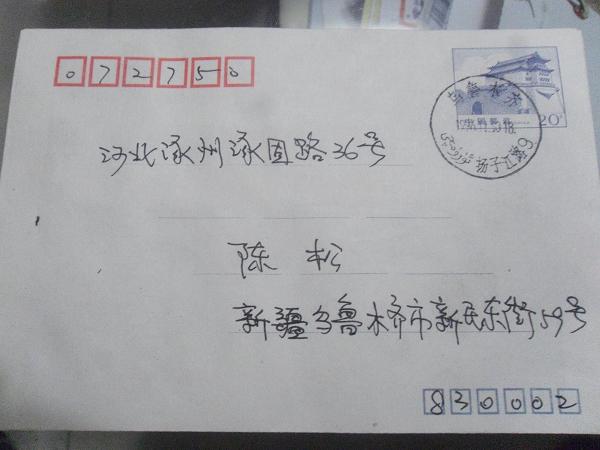 072750
20
乌鲁木齐
扬子江路9
河北涿州涿固路36号
陈松
新疆乌鲁木齐市新民东街59号
830002